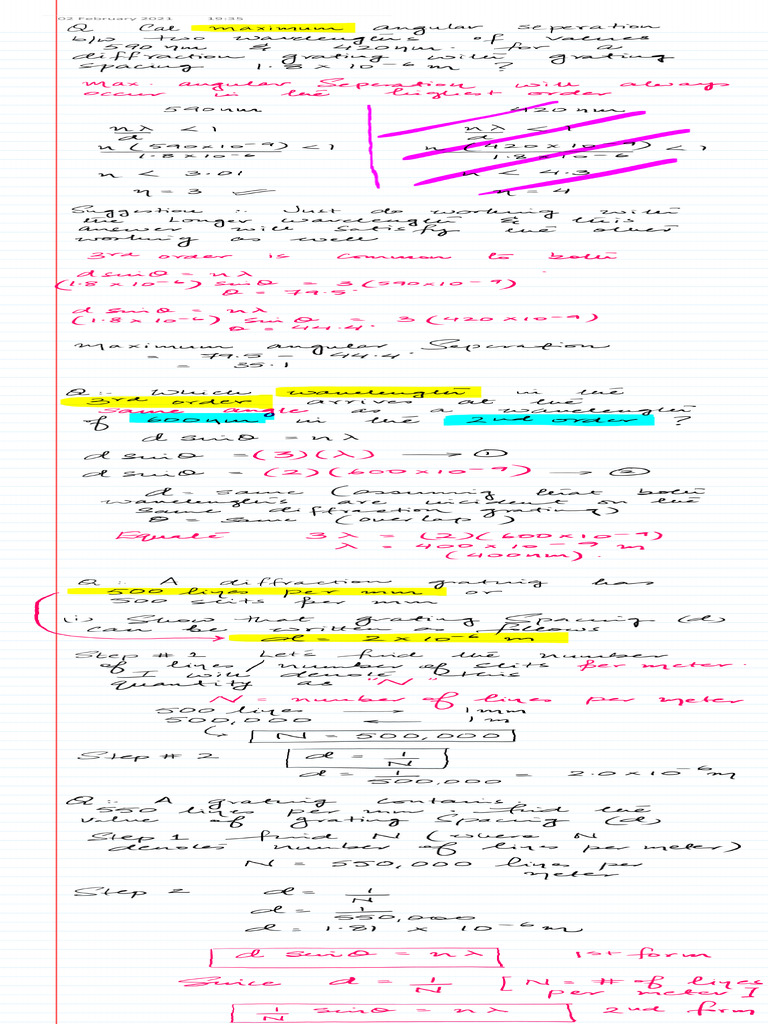 02 February 2021 19:35
Q Cal maximum angular seperation
b/w two wavelengths of values
590nm & 420nm. for a
diffraction grating with grating
spacing 1.8 × 10⁻⁶ m ?
max. angular Seperation will always
occur in the highest order
590nm 420nm
nλ/d < 1 nλ/d < 1
n(590×10⁻⁹)/1.8×10⁻⁶ < 1 n(420×10⁻⁹)/1.8×10⁻⁶ < 1
n < 3.01 n < 4.3
n = 3 n = 4
Suggestion :. Just do working with
the Longer wavelength & this
answer will satisfy the other
working as well
3rd order is common to both
d sinθ = nλ
(1.8×10⁻⁶) sinθ = 3(590×10⁻⁹)
θ = 79.5.
d sinθ = nλ
(1.8×10⁻⁶) sinθ = 3(420×10⁻⁹)
θ = 44.4.
maximum angular Seperation
= 79.5 - 44.4.
= 35.1
Q:- Which wavelength in the
3rd order arrives at the
same angle as a wavelength
of 600nm in the 2nd order ?
d sinθ = nλ
d sinθ = (3)(λ) → ①
d sinθ = (2)(600×10⁻⁹) → ②
d = same (assuming that both
wavelengths are incident on the
same diffraction grating)
θ = same (overlap)
Equate 3λ = (2)(600×10⁻⁹)
λ = 400×10⁻⁹ m
(400nm).
Q:. A diffraction grating has
500 lines per mm or
500 slits per mm
(i) Show that grating Spacing (d)
can be written as follows
d = 2×10⁻⁶ m
Step #1 Let's find the number
of lines / number of slits per meter.
I will denote this
quantity as "N"
N = number of lines per meter
500 lines → 1mm
500,000 ← 1m
↳ N = 500,000
Step #2 d = 1/N
d = 1/500,000 = 2.0×10⁻⁶m
Q:. A grating contains
550 lines per mm. find the
value of grating Spacing (d)
Step 1 find N (where N
denotes number of lines per meter)
N = 550,000 lines per
meter
Step 2 d = 1/N
d = 1/550,000
d = 1.81 × 10⁻⁶m
d sinθ = nλ 1st form
Since d = 1/N [N = # of lines
per meter]
1/N sinθ = nλ 2nd form